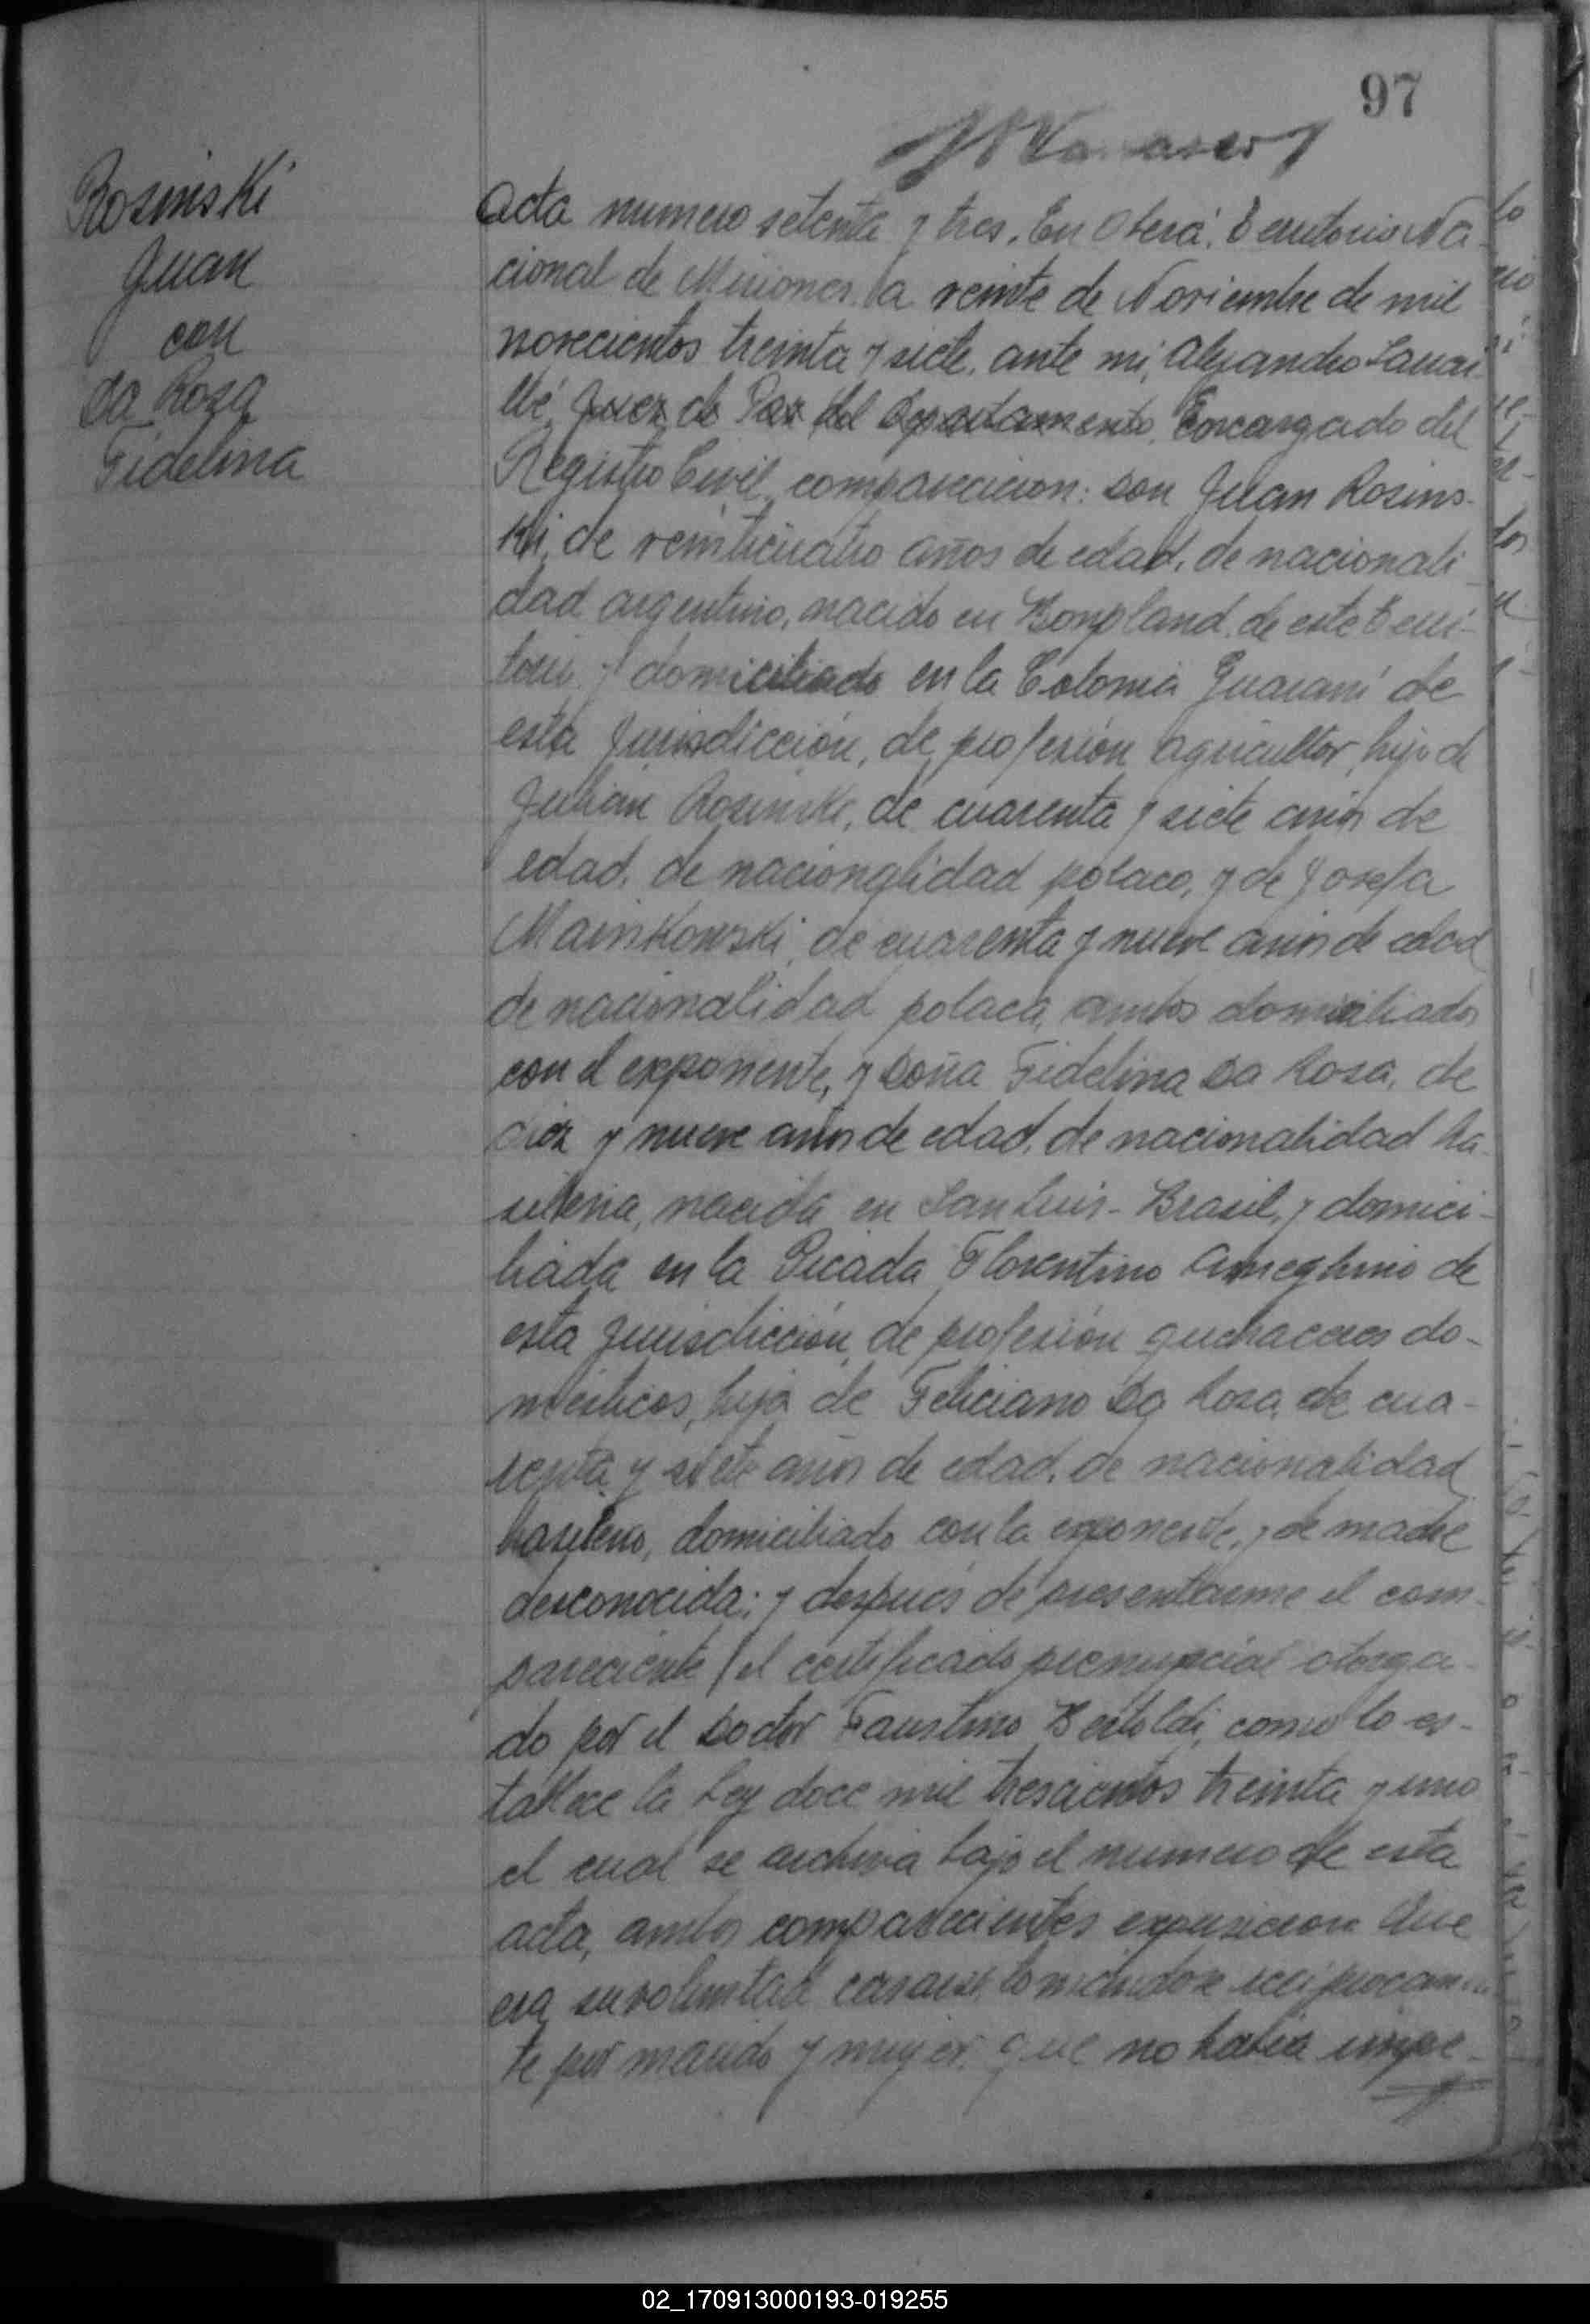 97
Rosinski
Juan
con
Da Rosa
Fidelina
Acta numero setenta y tres. En Oberá, Territorio Na-
cional de Misiones, a veinte de Noviembre de mil
novecientos treinta y siete, ante mi, Alejandro
Juez de Paz del Departamento, Encargado del
Registro Civil, comparecieron: Don Juan Rosins-
ki, de veinticuatro años de edad, de nacionali-
dad argentino, nacido en Bonpland, de este Terri-
torio y domiciliado en la Colonia Guaraní de
esta jurisdicción, de profesión agricultor, hijo de
Julián Rosinski, de cuarenta y siete años de
edad, de nacionalidad polaco, y de Josefa
Mainkowski, de cuarenta y nueve años de edad
de nacionalidad polaca, ambos domiciliados
con el exponente, y Doña Fidelina Da Rosa, de
diez y nueve años de edad, de nacionalidad bra-
sileña, nacida en San Luis - Brasil, y domici-
liada en la Picada Florentino Ameghino de
esta jurisdicción, de profesión quehaceres do-
mésticos, hija de Feliciano Da Rosa, de cua-
renta y siete años de edad, de nacionalidad
brasileño, domiciliado con la exponente, y de madre
desconocida; y después de presentarme el com-
pareciente el certificado prenupcial otorga-
do por el Doctor Faustino Bertoldi, como lo es-
tablece la Ley doce mil trescientos treinta y uno
el cual se archiva bajo el numero de esta
acta, ambos comparecientes expusieron: Que
era su voluntad casarse, tomándose recíprocamen-
te por marido y mujer, que no había impe-
02_170913000193-019255